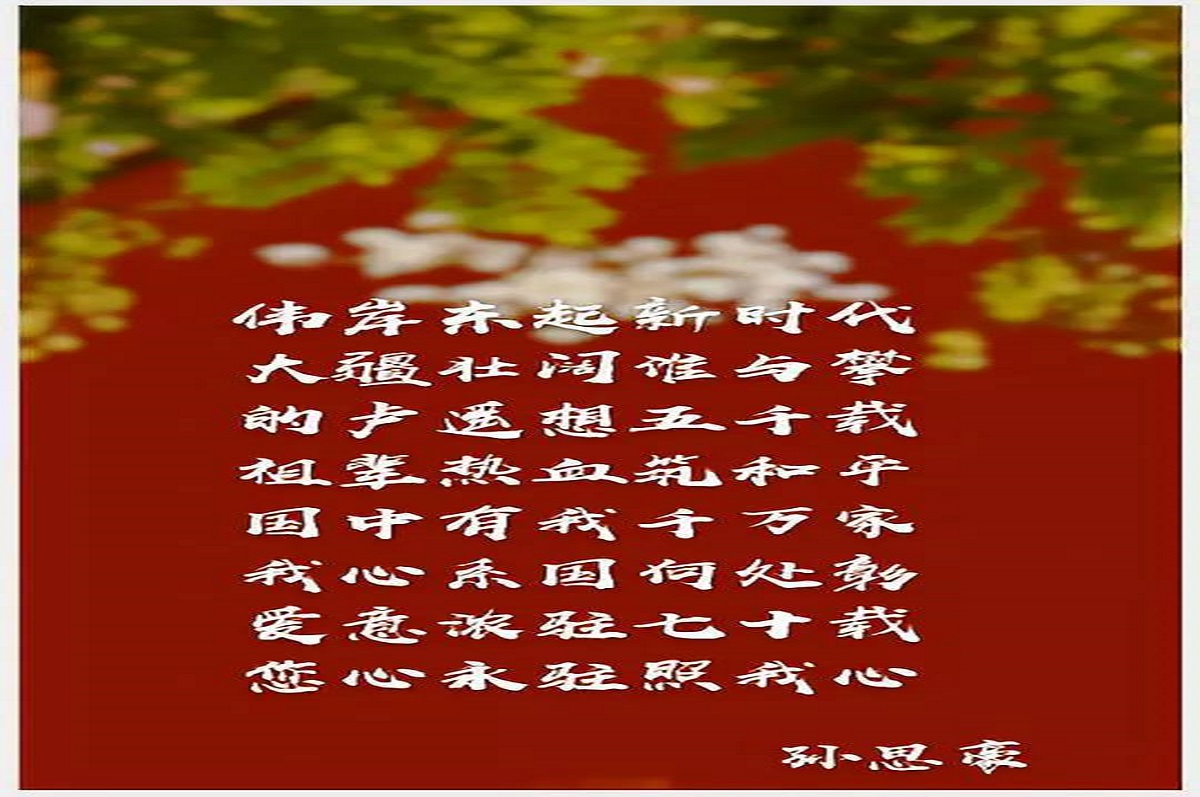 伟岸东起新时代
大疆壮阔谁与攀
的卢遥想五千载
祖辈热血筑和平
国中有我千万家
我心系国何处彰
爱意浓驻七十载
您心永驻照我心
孙思豪